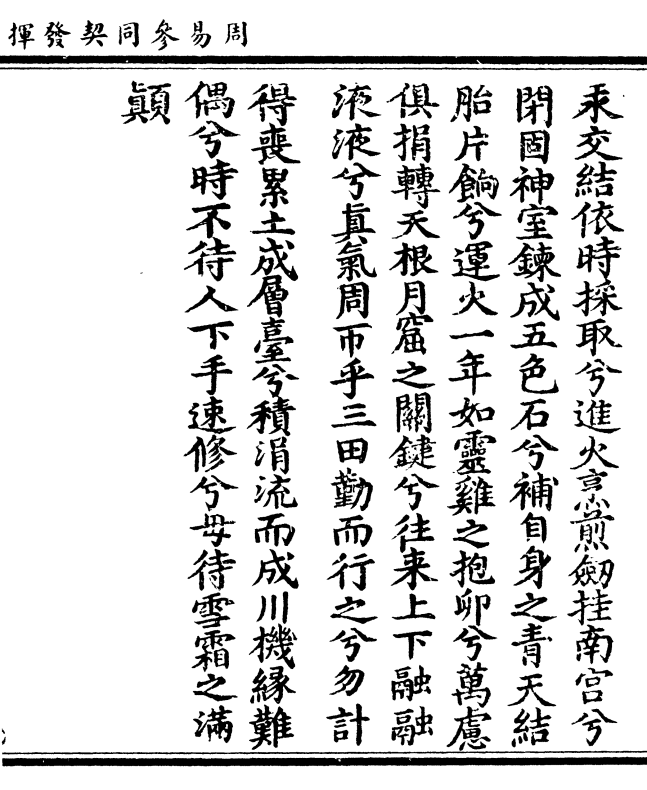 周易參同契發揮
汞交結依時採取兮進火烹煎劒挂南宫兮
閉固神室鍊成五色石兮補自身之青天結
胎片餉兮運火一年如靈雞之抱卵兮萬慮
俱捐轉天根月窟之關鍵兮往来上下融融
液液兮眞氣周帀乎三田勤而行之兮勿計
得喪累土成層臺兮積涓流而成川機緣難
偶兮時不待人下手速修兮毋待雪霜之滿
顚